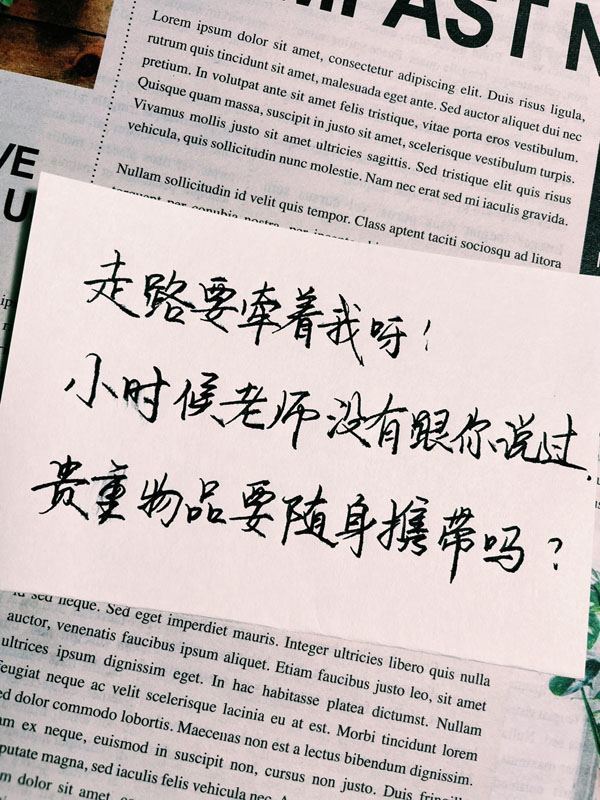 AST N
Lorem ipsum dolor sit amet, consectetur adipiscing elit. Duis risus ligula,
rutrum quis tincidunt sit amet, malesuada eget ante. Sed auctor aliquet dui nec
pretium. In volutpat ante sit amet felis tristique, vitae porta eros vestibulum.
Quisque quam massa, suscipit in justo sit amet, scelerisque vestibulum turpis.
Vivamus mollis justo sit amet ultricies sagittis. Sed tristique elit quis risus
vehicula, quis sollicitudin nunc molestie. Nam nec erat sed mi iaculis gravida.
Nullam sollicitudin id velit quis tempor. Class aptent taciti sociosqu ad litora
VE
U
走路要牵着我呀！
小时候老师没有跟你说过，
贵重物品要随身携带吗？
sed neque. Sed eget imperdiet mauris. Integer ultricies libero quis nulla
auctor, venenatis faucibus ipsum aliquet. Etiam faucibus justo leo, sit amet
ultrices ipsum dignissim eget. In hac habitasse platea dictumst. Nullam
feugiat neque ac velit scelerisque lacinia eu at est. Morbi tincidunt lorem
sed dolor commodo lobortis. Maecenas non est a lectus bibendum dignissim.
ex neque, euismod in suscipit non, cursus non justo. Duis fringilla
magna, sed iaculis felis vehicula nec.
dolor sit amet, consectetur adipiscing elit.